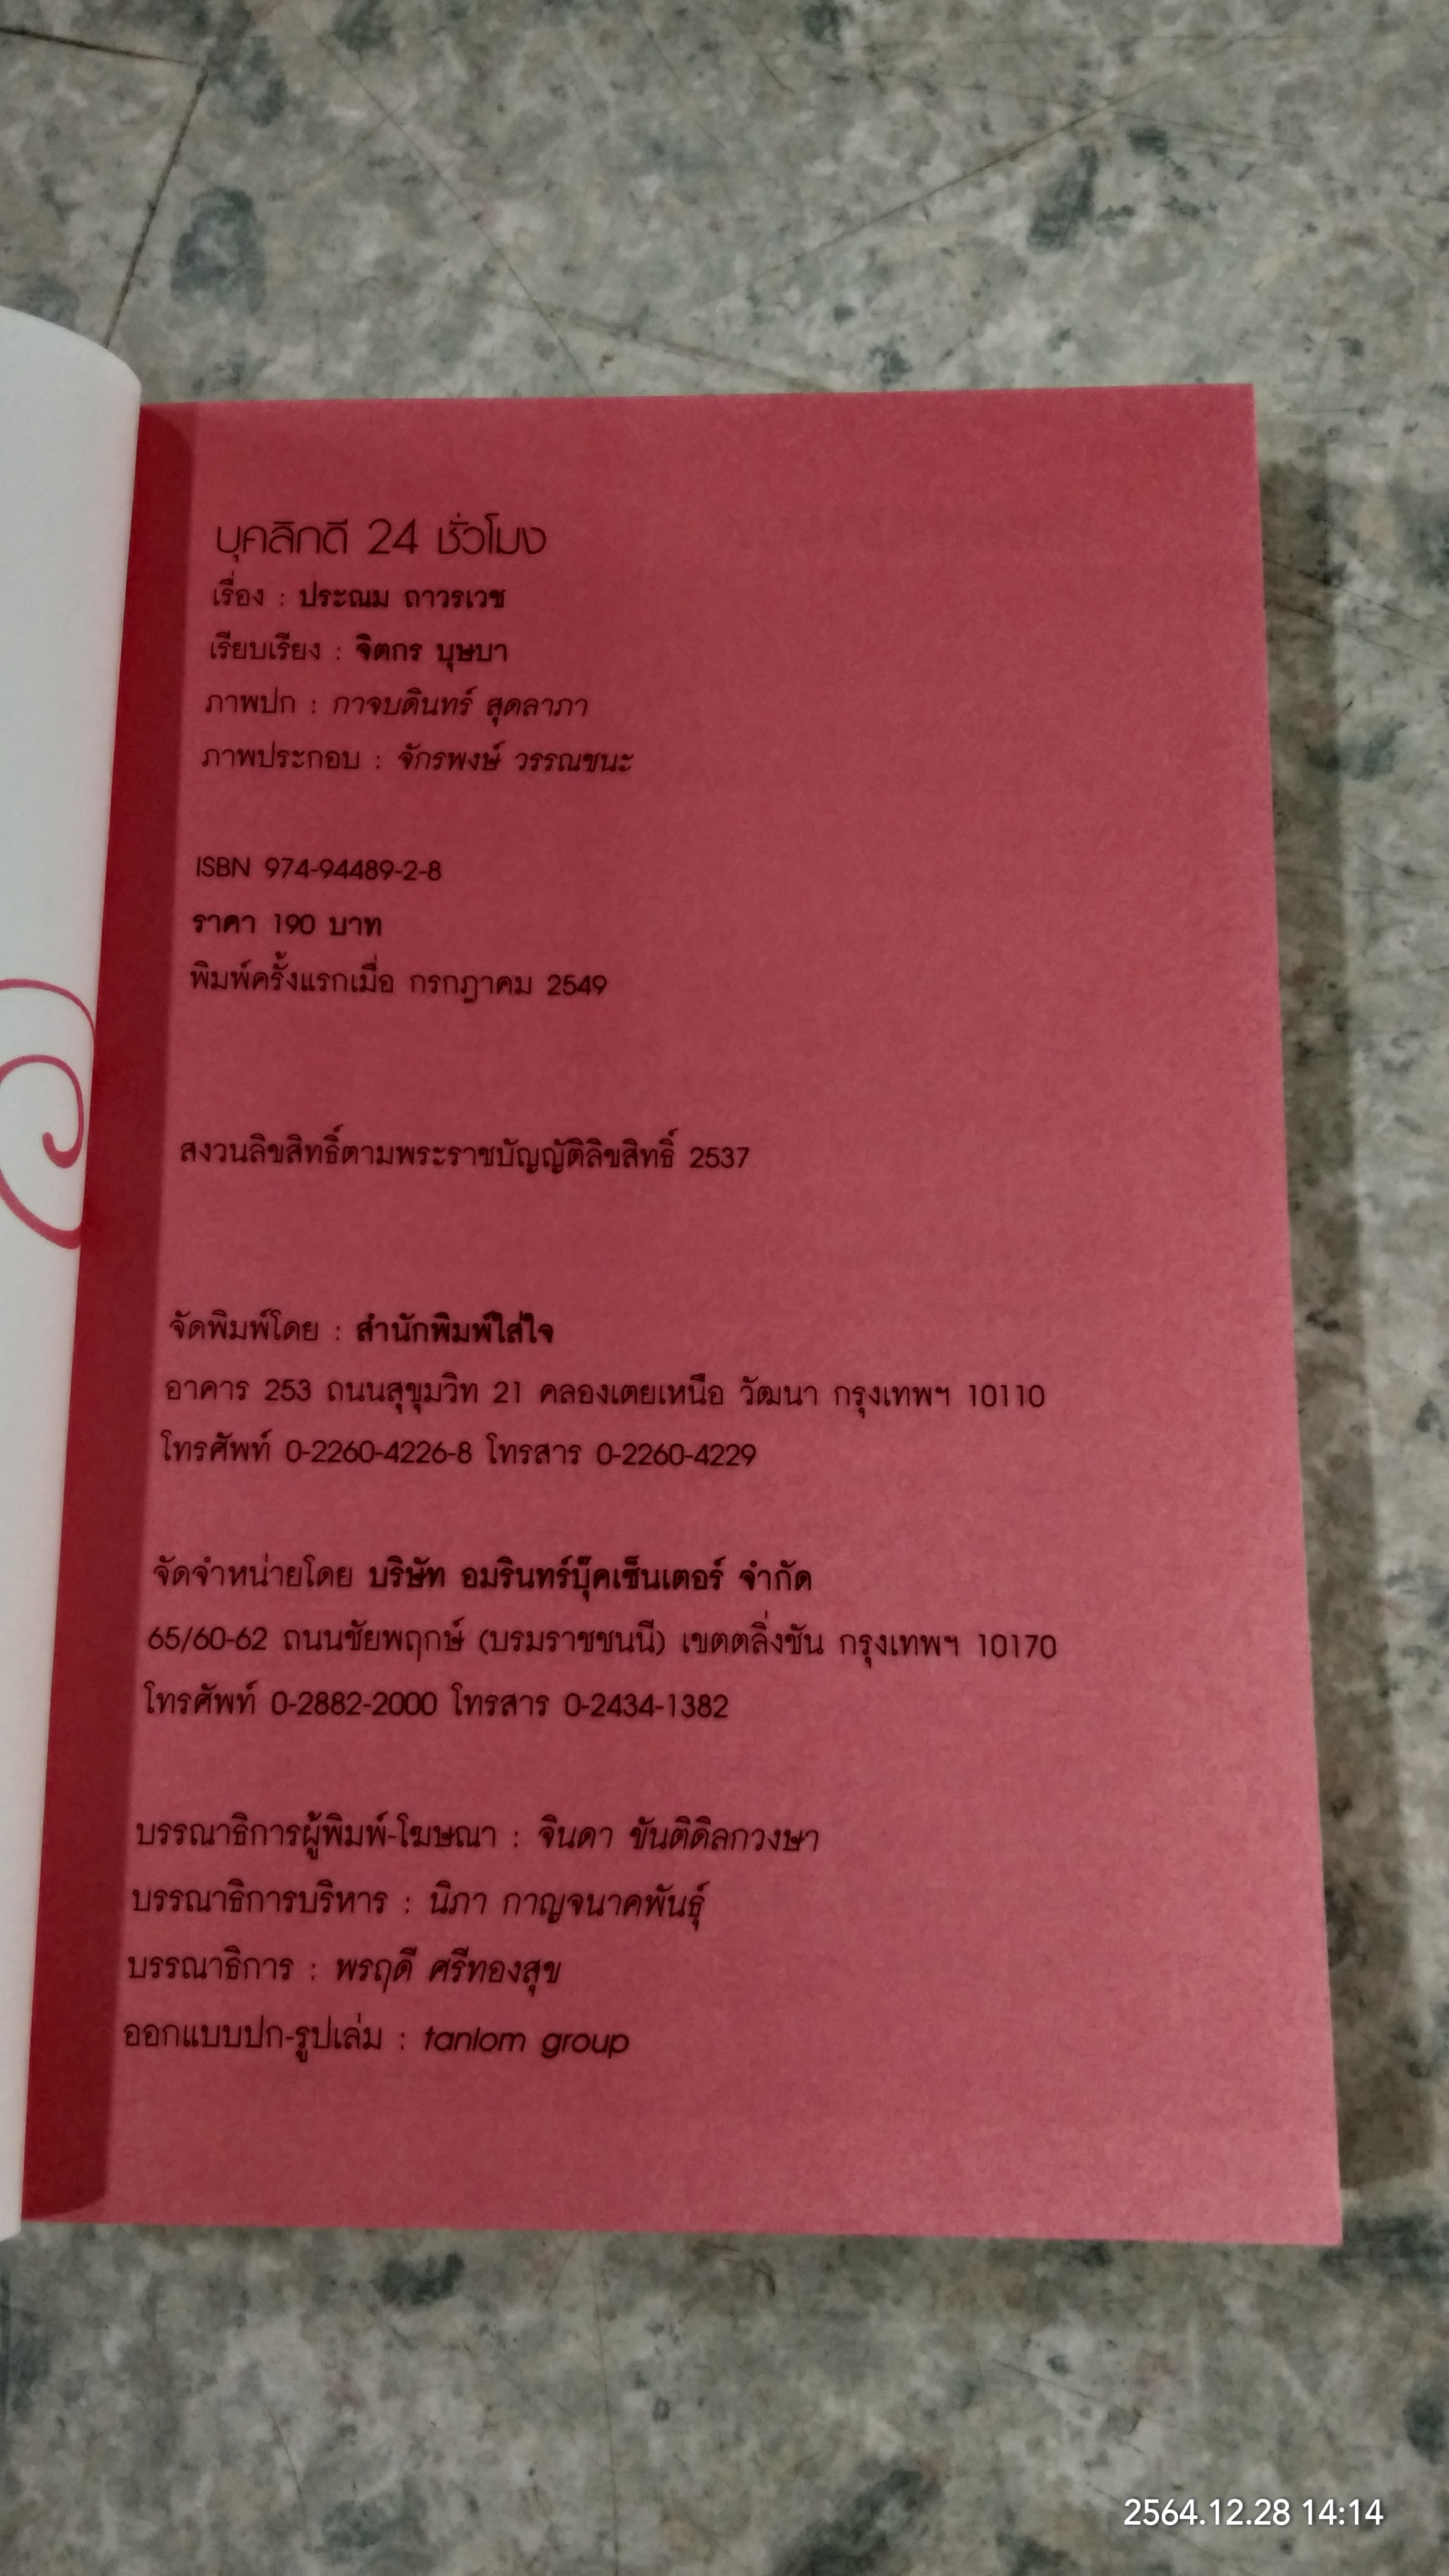 บุคลิกดี 24 ชั่วโมง
เรื่อง : ประณม ถาวรเวช
เรียบเรียง : จิตกร บุษบา
ภาพปก : กาจบดินทร์ สุดลาภา
ภาพประกอบ : จักรพงษ์ วรรณชนะ
ISBN 974-94489-2-8
ราคา 190 บาท
พิมพ์ครั้งแรกเมื่อ กรกฎาคม 2549
สงวนลิขสิทธิ์ตามพระราชบัญญัติลิขสิทธิ์ 2537
จัดพิมพ์โดย : สำนักพิมพ์ใส่ใจ
อาคาร 253 ถนนสุขุมวิท 21 คลองเตยเหนือ วัฒนา กรุงเทพฯ 10110
โทรศัพท์ 0-2260-4226-8 โทรสาร 0-2260-4229
จัดจำหน่ายโดย บริษัท อมรินทร์บุ๊คเซ็นเตอร์ จำกัด
65/60-62 ถนนชัยพฤกษ์ (บรมราชชนนี) เขตตลิ่งชัน กรุงเทพฯ 10170
โทรศัพท์ 0-2882-2000 โทรสาร 0-2434-1382
บรรณาธิการผู้พิมพ์-โฆษณา : จินดา ขันติดิลกวงษา
บรรณาธิการบริหาร : นิภา กาญจนาคพันธุ์
บรรณาธิการ : พรฤดี ศรีทองสุข
ออกแบบปก-รูปเล่ม : tanlom group
2564.12.28 14:14